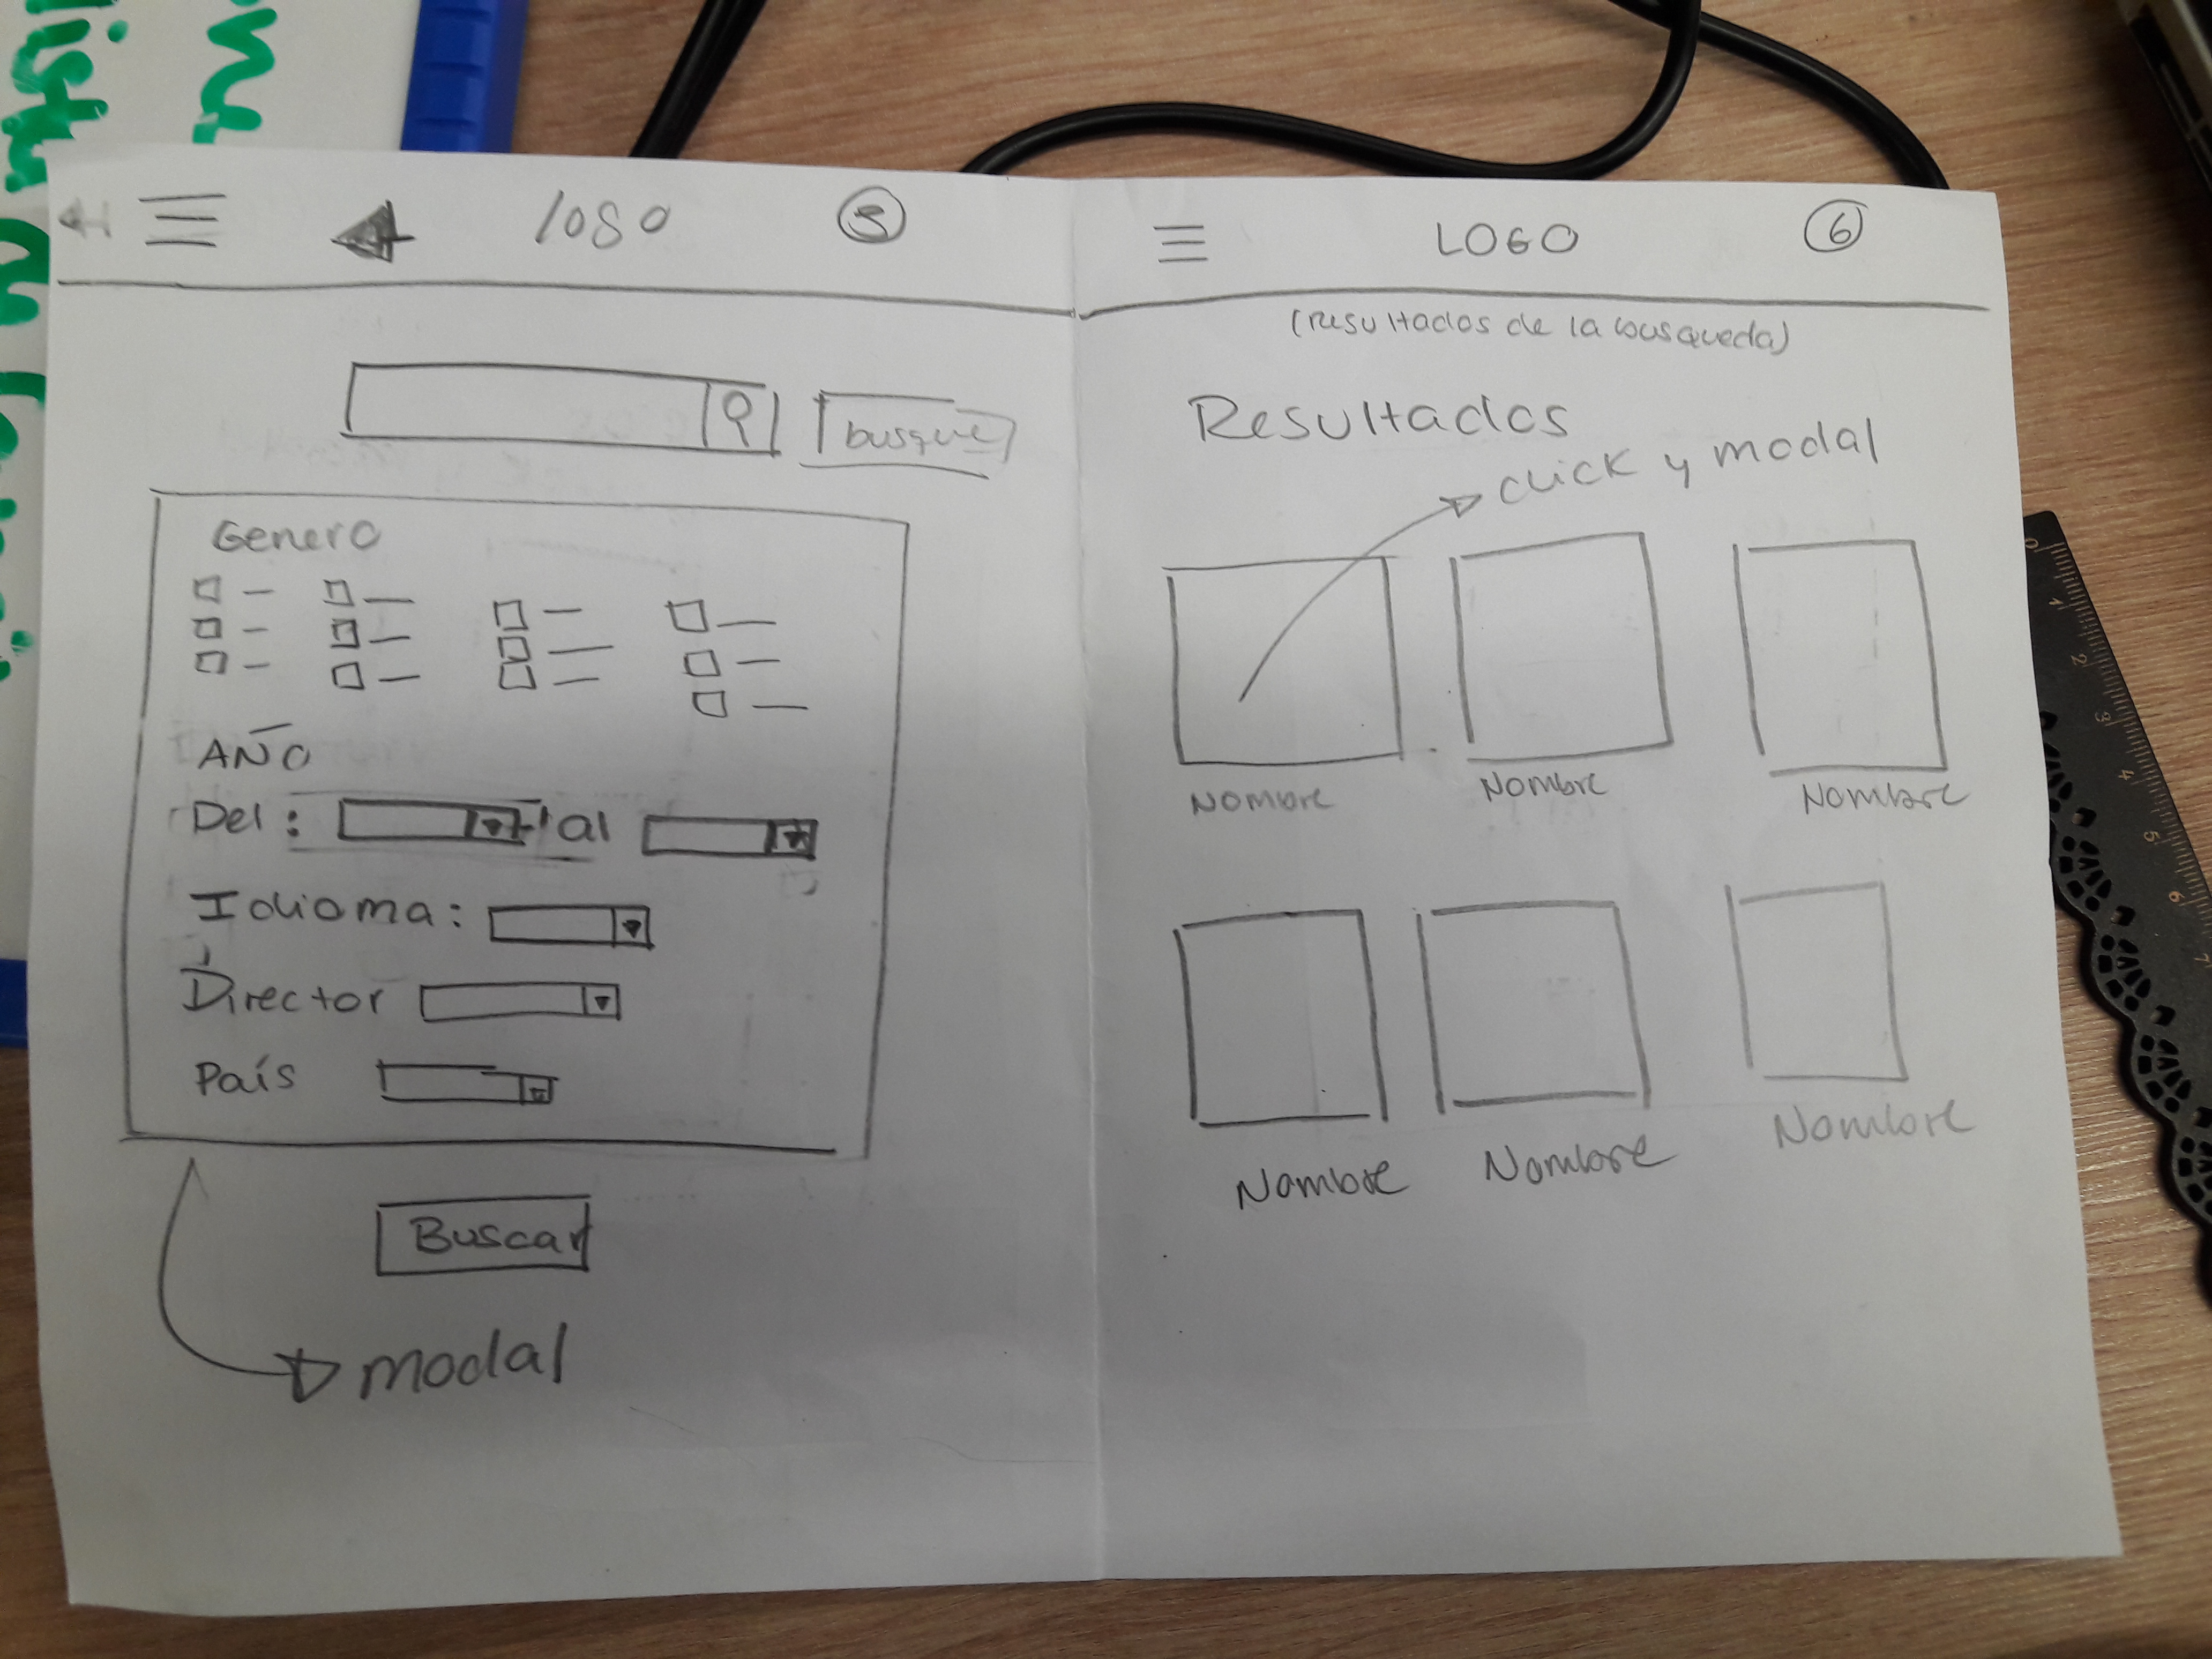 logo
5
Genero
AÑO
Del:
al
Idioma:
Director
País
Buscar
modal
LOGO
6
(resultados de la busqueda)
Resultados
click y modal
Nombre
Nombre
Nombre
Nombre
Nombre
Nombre
0
1
2
3
4
5
6
7